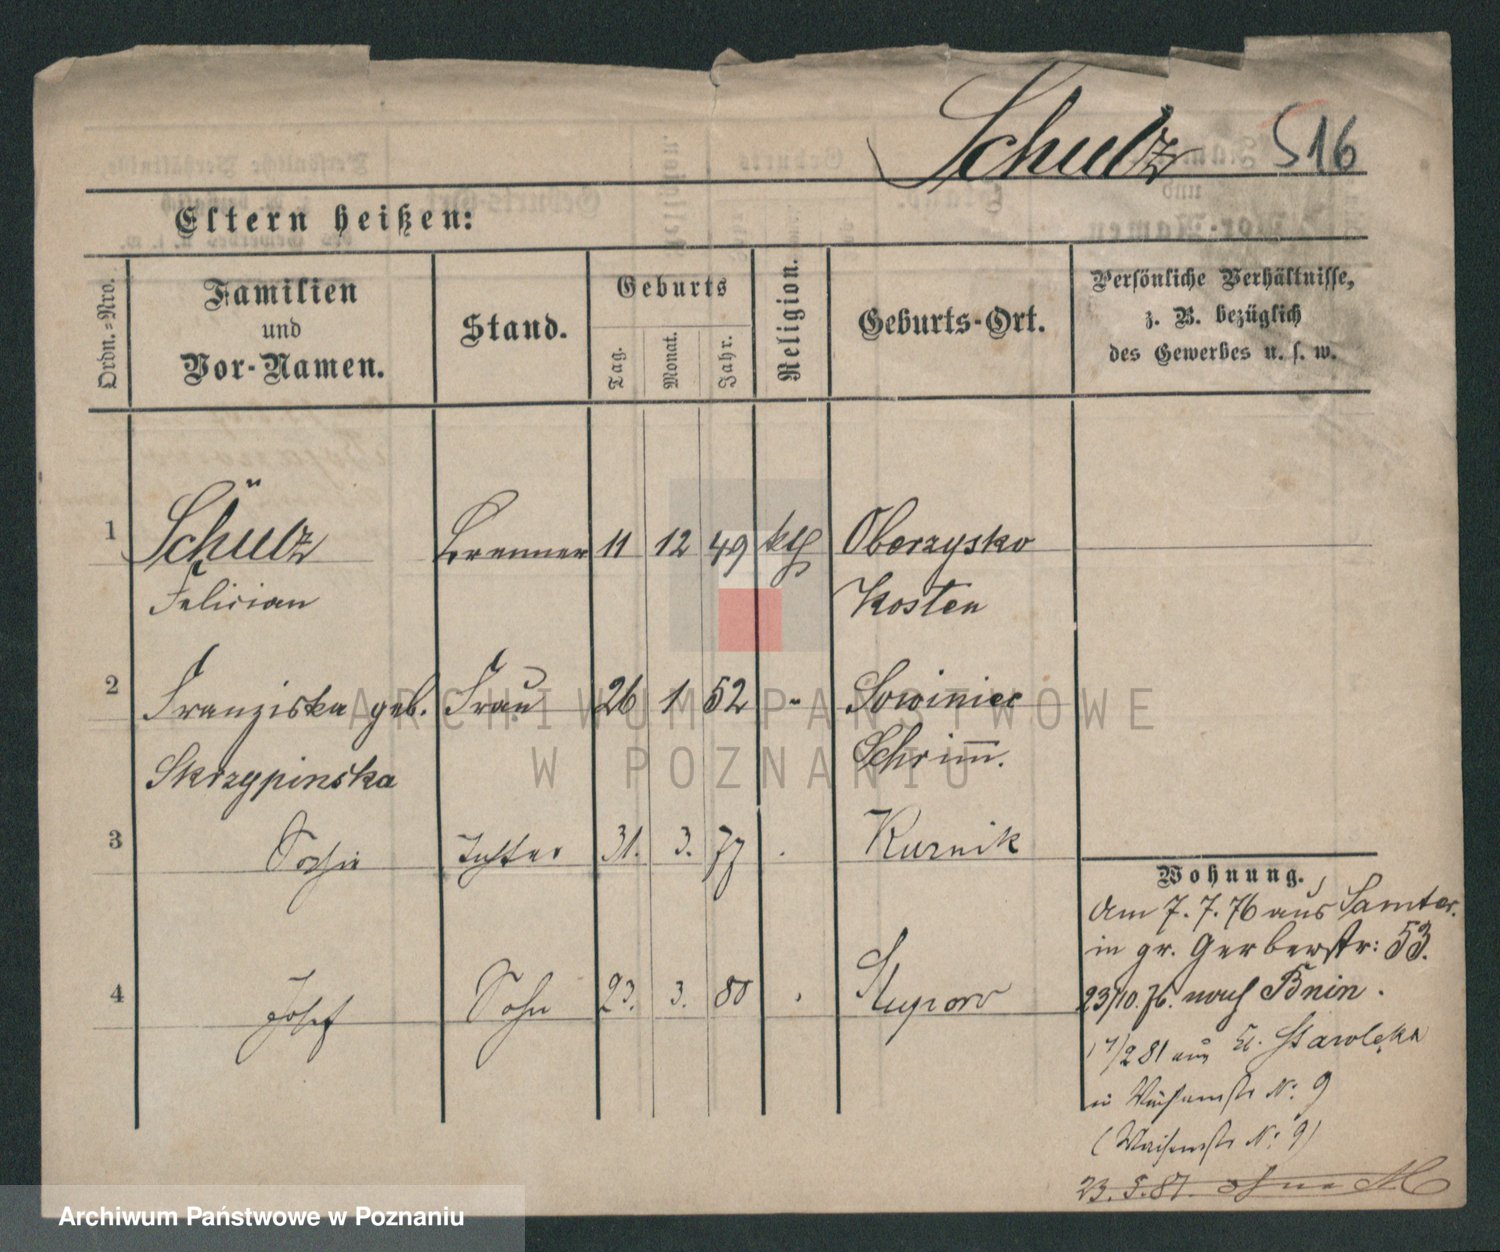 Schulz S16
Eltern heißen:
Ordn.=Nro.
Familien
und
Vor-Namen.
Stand.
Geburts
Tag.
Monat.
Jahr.
Religion.
Geburts-Ort.
Persönliche Verhältnisse,
z. B. bezüglich
des Gewerbes u. s. w.
1 Schülz Brenner 11 12 49 kth Oberzysko
Felician Kosten
2 Franziska geb. Frau 26 1 52 " Sowiniec
Skrzypinska Schrimm.
3 Sophie Tochter 31. 3. 77 Kurnik
4 Josef Sohn 23. 3. 80
Wohnung.
Am 7. 7. 76 aus Samter.
in gr. Gerberstr: 53.
23/10. 76. nach Bnin.
/2 81 aus Starolęka
in N: 9
(Waisenstr N: 9)
23. 5. 81.
ARCHIWUM PAŃSTWOWE
W POZNANIU
Archiwum Państwowe w Poznaniu